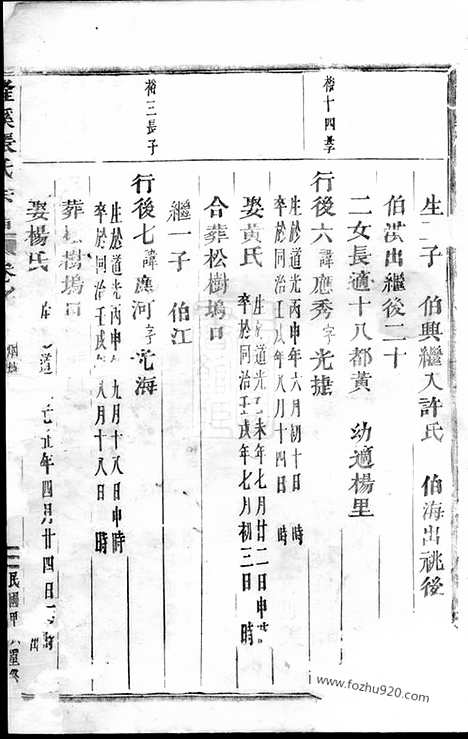 生 子 伯興繼入許氏 伯海出祧後
伯洪出繼後二十
二女長適十八都黃 幼適楊里
裕十四長子
行後六諱應秀字光捷
生於道光丙申年六月初十日 時
卒於同治壬戌年八月十四日 時
娶黃氏
生 道光 未年七月廿二日申時
卒於同治壬戌年七月初三日 時
合葬松樹塢口
繼一子 伯江
裕三長子
行後七諱應河字光海
生於道光丙申 九月十八日申時
卒於同治壬戌 八月十八日 時
葬松樹塢口
娶楊氏
年四月廿四日
隆溪張氏宗
民國甲
www.fozhu920.com